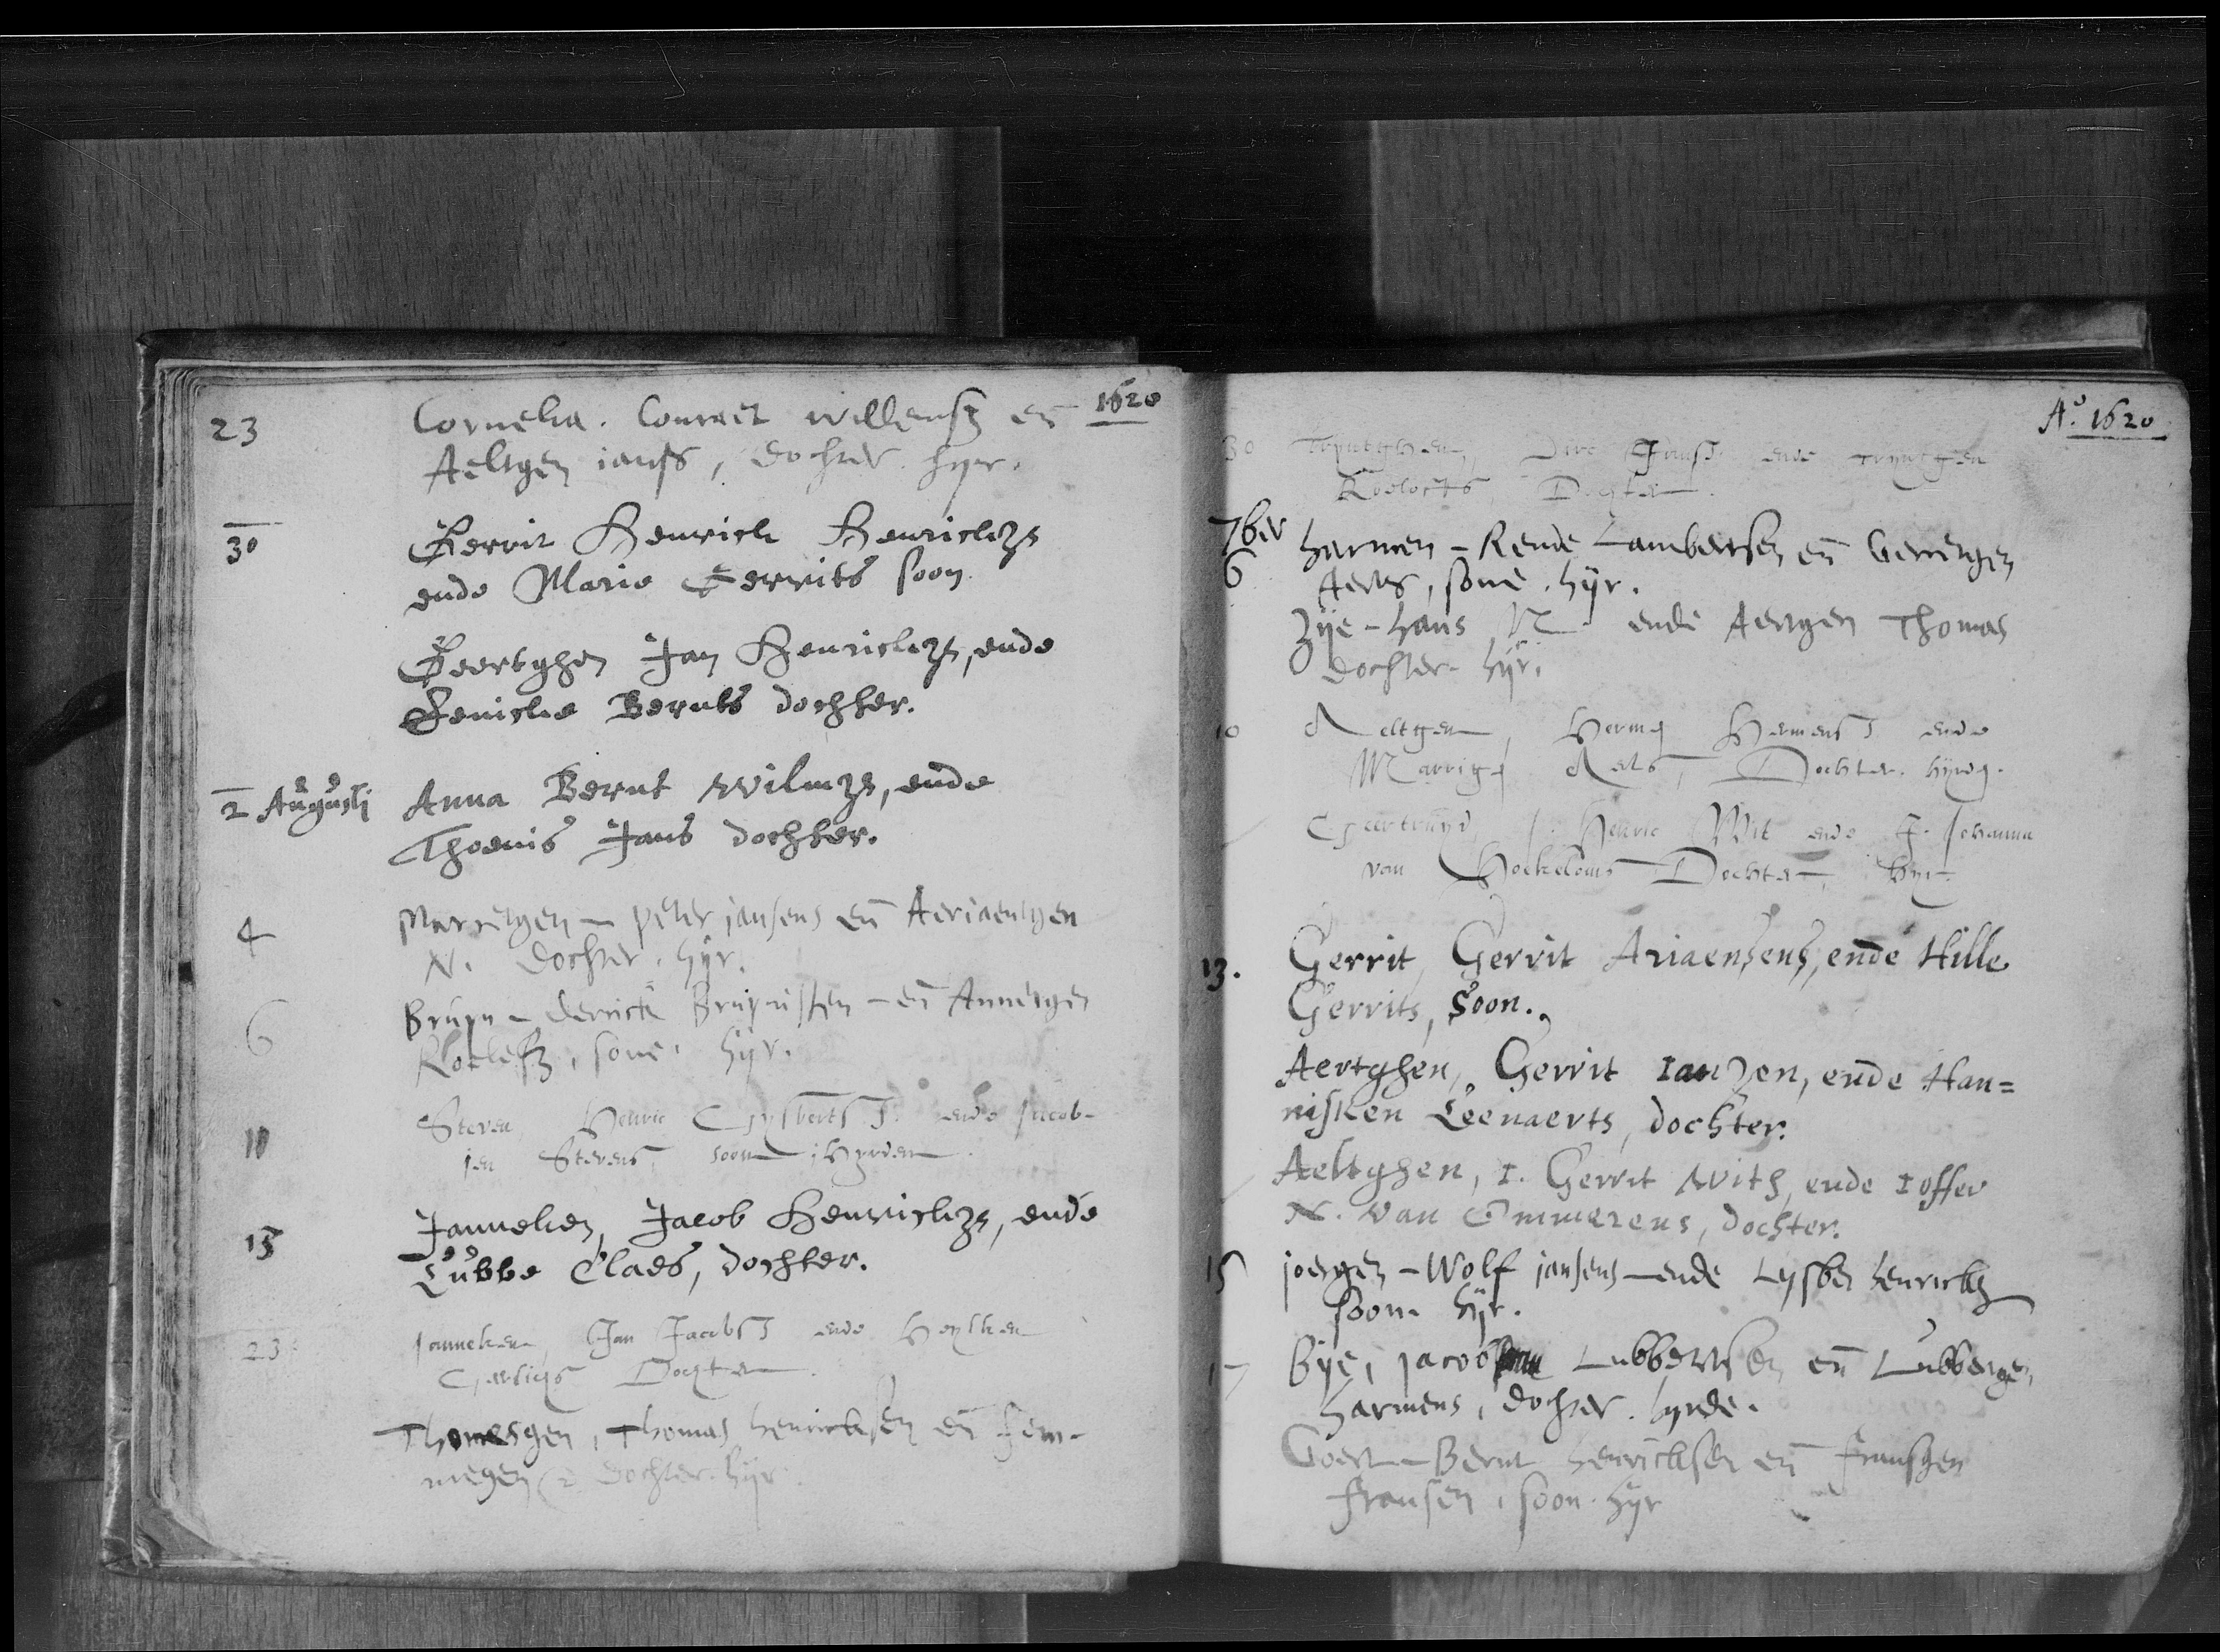 1620
23 Cornelia. Conraet willensz en̄
Aeltgen ianss, dochter hyr.
30 Gerrit Henrick Henrickzn
ende Marie Gerrits soon
Geertghen Jan Henrickzn, ende
Jenicke Bernts dochter.
2 Augusti Anna Bernt Wilmzn, ende
Thoenis Jans dochter.
4 Marretgen – peter jansens en̄ Aeriaentgen
N. dochter. hyr.
6 Bruyn – derrick Bruynissen – en̄ Annetgen
Roelefsz, sone. hyr.
10 Steven, Henric Gysberts S. ende Jacob-
jen Stevens, soon, hyrden
15 Janneken, Jacob Henrickzn, ende
Lubbe Claes, dochter.
23 Janneken, Jan Jacobs S ende Heylken
Dogter.
Thomesgen, Thomas henricksen en̄ fem-
megen dochter. hyr.
Aº. 1620
30 Tryntghen, Dirc Jans S. ende tryntgen
Roelofs, Dogter.
7ber
6 harmen – Rende Lambertsen en̄ Gerretgen
Aerts, sone. hyr.
Zije – hans N. ende Aertgen Thomas
dochter. hyr.
10 Aeltgen, Herm. Hermens S ende
Marrig. Aelts, Dochter. hyrd.
Geertruyd, J. Henric Wit ende J. Johanna
van Hoekeloms Dochter, hyr.
13. Gerrit, Gerrit Ariaensens, ende Hille
Gerrits, soon.
Aertghen, Gerrit Ianzen, ende Han=
nisken Leenaerts, dochter.
Aeltghen, I. Gerrit With, ende Ioffer
N. van Ommerens, dochter.
15 joergen – Wolf jansens – ende Lysben henricks
soon. hyr.
17 Bye, jacob Lubbertsen en̄ Lubbetgen
harmens, dochter. hyrde.
Goert – Bernt henricksen en̄ fransgen
fransen, soon. hyr